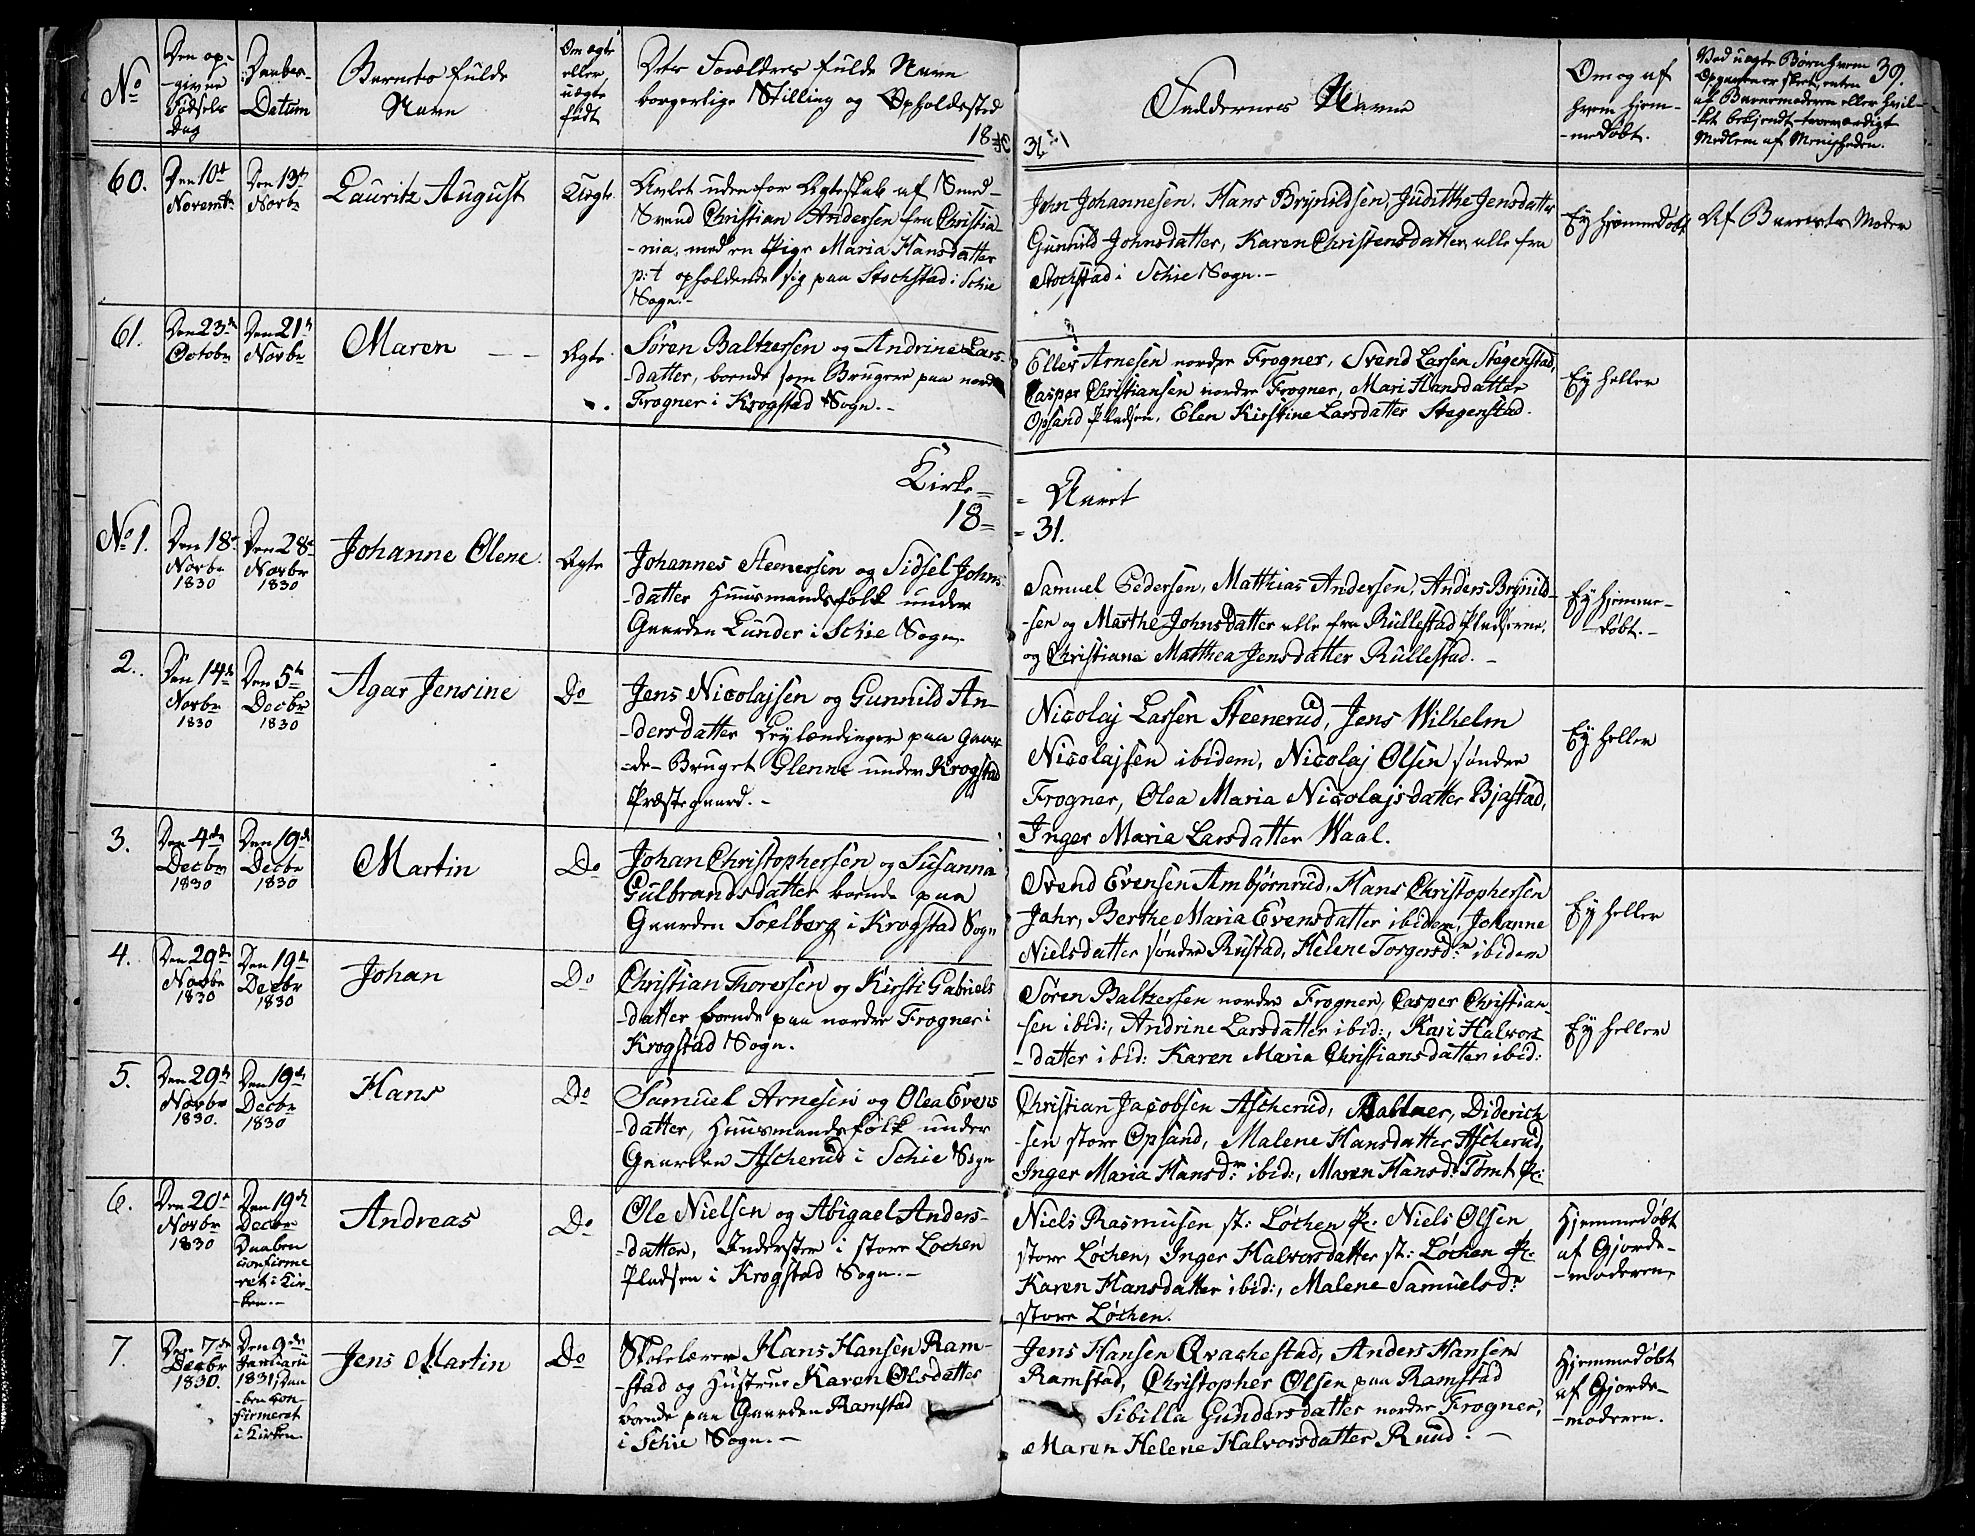 No
Den op-
-givne
Fødsels
Dag
Daabs-
Datum
Barnets fulde
Navn
Om ægte
eller
uægte
født
Dets Forældres fulde Navn
borgerlige Stilling og Opholdssted
18
Faddernes Navne
31
Om og af
hvem hjem-
-medøbt.
Ved uægte Børn hvem
Opgaven er skeet, enten
af Barnemoderen eller hvil-
-ket bekjendt troværdigt
Medlem af Menigheden.
39.
60.
Den 10de
Novembr
Den 13de
Novbr
Lauritz August
Uægte
Avlet udenfor Ægteskab af Smed-
Svend Christian Andersen fra Christia-
-nia, med en Pige Maria Hansdatter
p: t opholdende sig paa Stochstad i Schie
Sogn.-
John Johannesen. Hans Brynildsen, Judithe Jensdatter
Gunhild Johnsdatter, Karen Christensdatter, alle fra
Stochstad i Schie Sogn.-
Ey hjemmedøbt
Af Barnets Moder
61.
Den 23de
Octobr
Den 21de
Novbr
Maren
Ægte
Søren Baltzersen og Andrine Lars-
-datter, boende som Brugere paa nordr
Frogner i Krogstad Sogn.-
Eller Arnesen nordre Frogner, Svend Larsen Stegenstad,
Casper Christiansen nordre Frogner, Mari Hansdatter
Opsand Pladsen, Elen Kirstine Larsdatter Stegenstad.
Ey heller
Kirke-
- Aaret
18-
- 31.
No 1.
Den 18de
Novbr
1830
Den 28de
Novbr
1830
Johanne Olene.
Ægte
Johannes Steenersen og Sidsel Johns-
-datter Huusmandsfolk under
Gaarden Lunder i Schie Sogn.
Samuel Pedersen, Matthias Andersen, Anders Brynild-
-sen og Marthe Johnsdatter alle fra Rullestad Pladserne,
og Christiana Matthea Jensdatter Rullestad.-
Ey hjemme-
døbt.-
2.
Den 14de
Novbr
1830
Den 5te
Decbr
1830
Agar Jensine
Do
Jens Nicolajsen og Gunnild An-
-dersdatter Leylændinger paa Gaar-
-de- Bruget Glenne under Krogstad
Præstegaard.-
Nicolaj Larsen Steenerud, Jens Wilhelm
Nicolajsen ibidem, Nicolaj Olsen søndre
Frogner, Olea Maria Nicolajsdatter Bjastad,
Inger Maria Larsdatter Waal.
Ey heller
3.
Den 4de
Decbr
1830
Den 19de
Decbr
1830
Martin
Do
Johan Christophersen og Susanna
Gulbrandsdatter boende paa
Gaarden Soelberg i Krogstad Sogn
Svend Evensen Ambjørnrud, Hans Christophersen
Jahr, Berthe Maria Evensdatter ibidem, Johanne
Nielsdatter søndre Rustad, Helene Torgersdr. ibidem
Ey heller
4.
Den 29de
Novbr
1830
Den 19de
Decbr
1830
Johan
Do
Christian Thoresen og Kirsti Gabriels
-datter boende paa nordre Frogner i
Krogstad Sogn.
Søren Baltzersen nordre Frogner, Casper Christian-
sen ibid:, Andrine Larsdatter ibid:, Kari Halvors
-datter ibid: Karen Maria Christiansdatter ibid:
Ey heller
5.
Den 29de
Novbr
1830.
Den 19de
Decbr
1830
Hans
Do
Samuel Arnesen og Olea Evens
-datter, Huusmandsfolk under
Gaarden Ascherud i Schie Sogn
Christian Jacobsen Ascherud, Diderich
-sen store Opsand, Malene Hansdatter Ascherud,
Inger Maria Hansdr. ibid:, Maren Hansdr Tomt Pl:
6.
Den 20de
Novbr
1830
Den 19de
Decbr
Daaben
confirme
-ret i Kir-
-ken.-
Andreas
Do
Ole Nielsen og Abigael Anders-
-datter, Inderster i store Lochen
Pladsen i Krogstad Sogn.-
Niels Rasmusen st: Løchen Pl: Niels Olsen
store Løchen, Inger Halvorsdatter st: Løchen Pl:
Karen Hansdatter ibid:, Malene Samuelsdr
store Løchen.
Hjemmedøbt
af Gjorde-
-moderen,
7.
Den 7de
Decbr
1830.
Den 9de
Januarii
1831, Daa-
-ben con-
firmeret
i Kirken.
Jens Martin
Do
Skolelærer Hans Hansen Ram-
-stad og Hustrue Karen Olsdatter
boende paa Gaarden Ramstad
i Schie Sogn.-
Jens Hansen Qvachestad, Anders Hansen
Ramstad, Christopher Olsen paa Ramstad
Sibilla Gundersdatter nordre Frogner,
Maren Helene Halvorsdatter Ruud.-
Hjemmedøbt
af Gjorde-
-moderen.